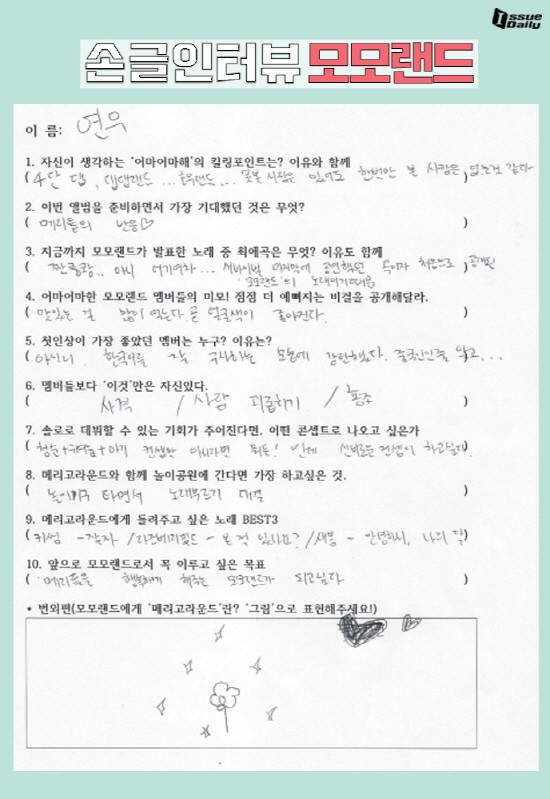 Issue
Daily
손글인터뷰 모모랜드
이 름: 연우
1. 자신이 생각하는 '어마어마해'의 킬링포인트는? 이유와 함께
( 4단 댑, 댑댑랜드... 못본 사람은 있어도 한번만 본 사람은 없는것 같다 )
2. 이번 앨범을 준비하면서 가장 기대했던 것은 무엇?
( 메리들의 반응♡ )
3. 지금까지 모모랜드가 발표한 노래 중 최애곡은 무엇? 이유도 함께
( 짠쿵쾅.. 아니 어기여차... 서바이벌 마지막에 공연했던 곡이자 처음으로 공개된
모모랜드의 노래이기때문 )
4. 어마어마한 모모랜드 멤버들의 미모! 점점 더 예뻐지는 비결을 공개해달라.
( 맛있는 걸 많이 먹는다. 곧 얼굴색이 좋아진다. )
5. 첫인상이 가장 좋았던 멤버는 누구? 이유는?
( 아인이! 한국어를 잘 구사하는 모습에 감탄했었다. 중국인인줄 알고... )
6. 멤버들보다 '이것'만은 자신있다.
( 사격 / 사람 괴롭히기 / 청소 )
7. 솔로로 데뷔할 수 있는 기회가 주어진다면, 어떤 콘셉트로 나오고 싶은가
( 청순+귀여움+아기 컨셉만 아니라면 뭐든! 근데 신비로운 컨셉이 하고싶다. )
8. 메리고라운드와 함께 놀이공원에 간다면 가장 하고싶은 것.
( 놀이기구 타면서 노래부르기 대결 )
9. 메리고라운드에게 들려주고 싶은 노래 BEST3
( 키썸 - 잘자 / - 본 적 있나요? / 새봄 - 안녕하시, 나의 달 )
10. 앞으로 모모랜드로서 꼭 이루고 싶은 목표
( 메리들을 행복하게 해주는 모모랜드가 되고싶다 )
* 번외편(모모랜드에게 '메리고라운드'란? '그림'으로 표현해주세요!)